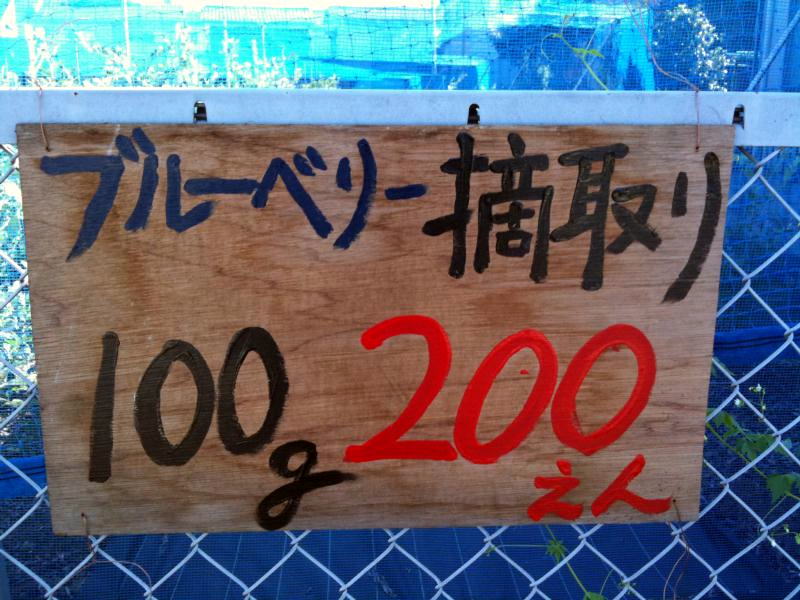 ブルーベリー摘取り
100g 200えん